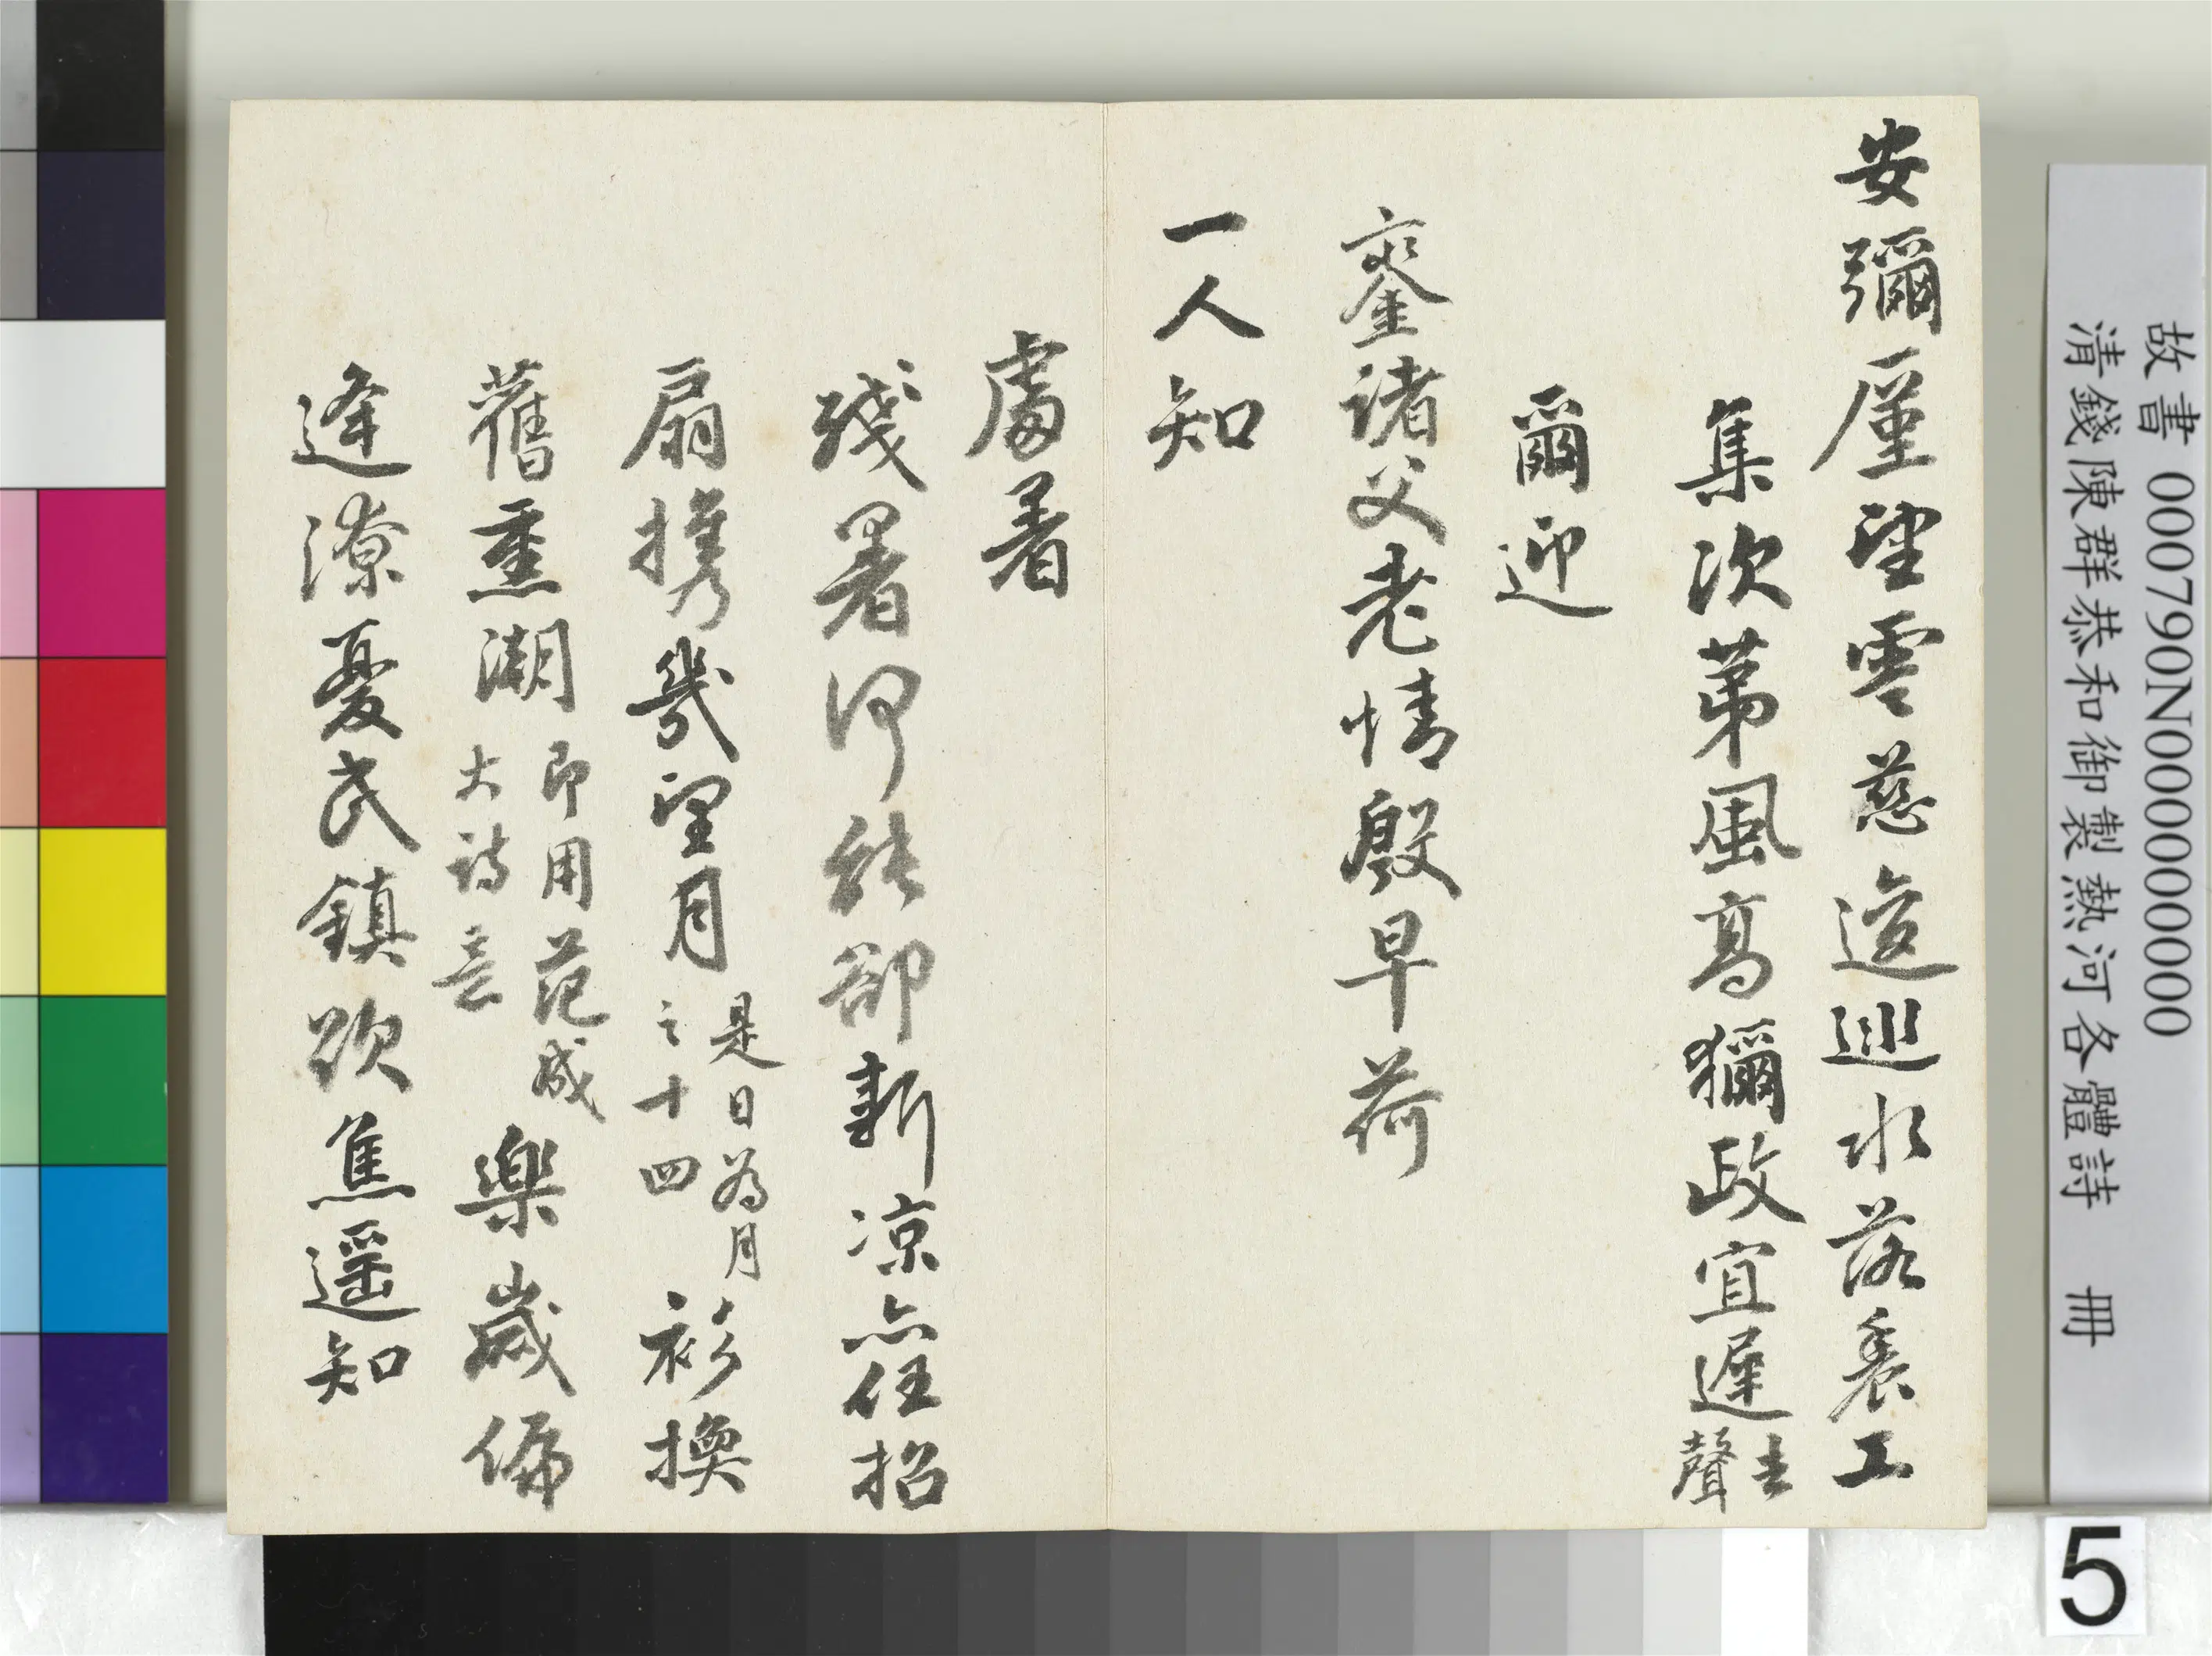 安彌厪望雲慈遶巡水落裘工
集次苐風高獮政宜遲去聲
爾迎
鑾諸父老情殷早荷
一人知
處暑
殘暑何能卻新涼亦任招
扇攜幾望月是日為月之十四衫換
舊熏潮即用范成大詩意樂歲偏
逢潦憂民鎮欲焦遥知
故書 000790N000000000
清錢陳群恭和御製熱河各體詩 冊
5